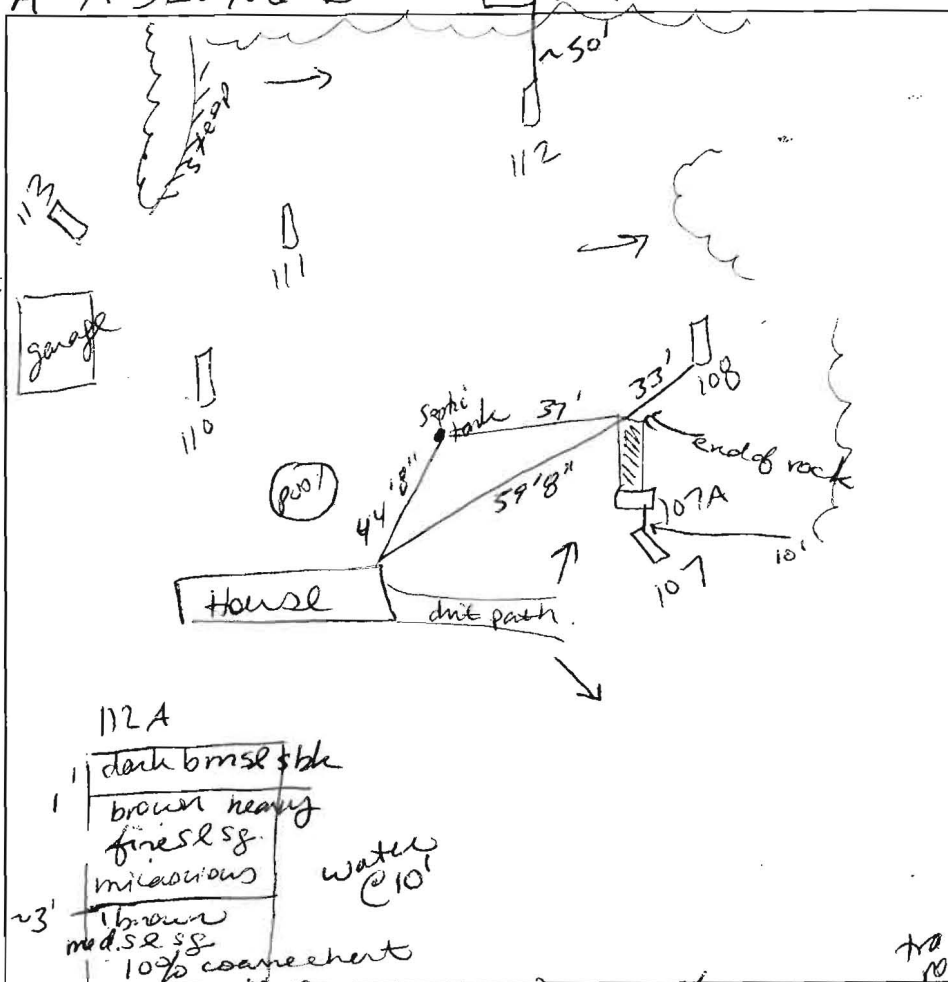 ~50'
steep
112
113
111
garage
108
33'
110
septi
tank
37'
end of rock
pool
44'8"
59'8"
107A
10'
107
House
dirt path
112A
dark brn sl sbk
1'
brown heavy
fine sl sg.
micacious
water
@ 10'
~3'
brown
med. sl sg
10% coarse chert